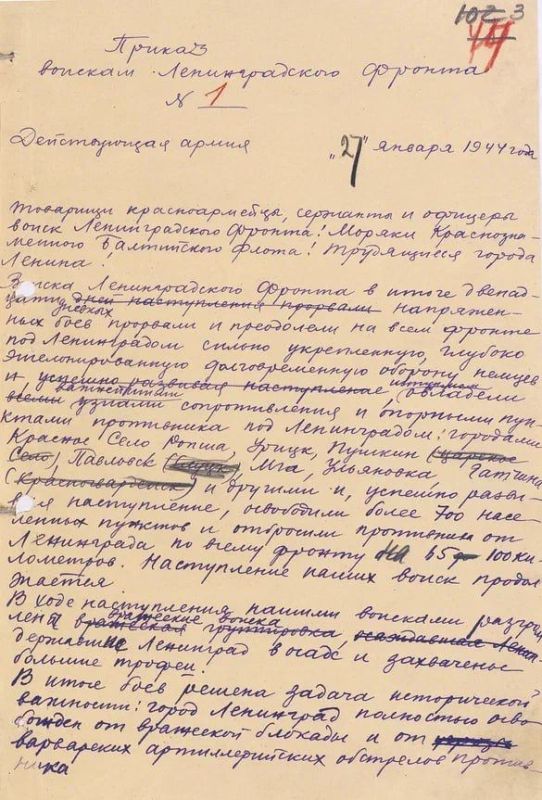 102 3
44
Приказ
войскам Ленинградского Фронта
N 1
Действующая армия „27" января 1944 года
Товарищи красноармейцы, сержанты и офицеры
войск Ленинградского Фронта! Моряки Краснозна-
менного Балтийского Флота! Трудящиеся города
Ленина!
Войска Ленинградского Фронта в итоге двенад-
цати дней наступления прорвали напряжен-
дневных
ных боев прорвали и преодолели на всем фронте
под Ленинградом сильно укрепленную, глубоко
эшелонированную долговременную оборону немцев
и, успешно развивая наступление, овладели
важнейшими
всеми узлами сопротивления и опорными пун-
ктами противника под Ленинградом: городами
Красное Село Ропша, Урицк, Пушкин (Царское
Село) Павловск Мга, Ульяновка, Гатчина
(Красногвардейск) и другими и, успешно разви-
вая наступление, освободили более 700 насе-
ленных пунктов и отбросили противника от
Ленинграда по всему фронту на 65 100 ки-
лометров. Наступление наших войск продол
жается
В ходе наступления нашими войсками разгром
вражеские войска
лена вражеская группировка, осаждавшая Ленин
державшие Ленинград в осаде и захвачены
большие трофеи.
В итоге боев решена задача исторической
важности: город Ленинград полностью осво
божден от вражеской блокады и от
варварских артиллерийских обстрелов против-
ника